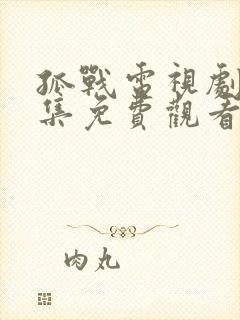 孤戰電視劇
集免費觀看
肉丸